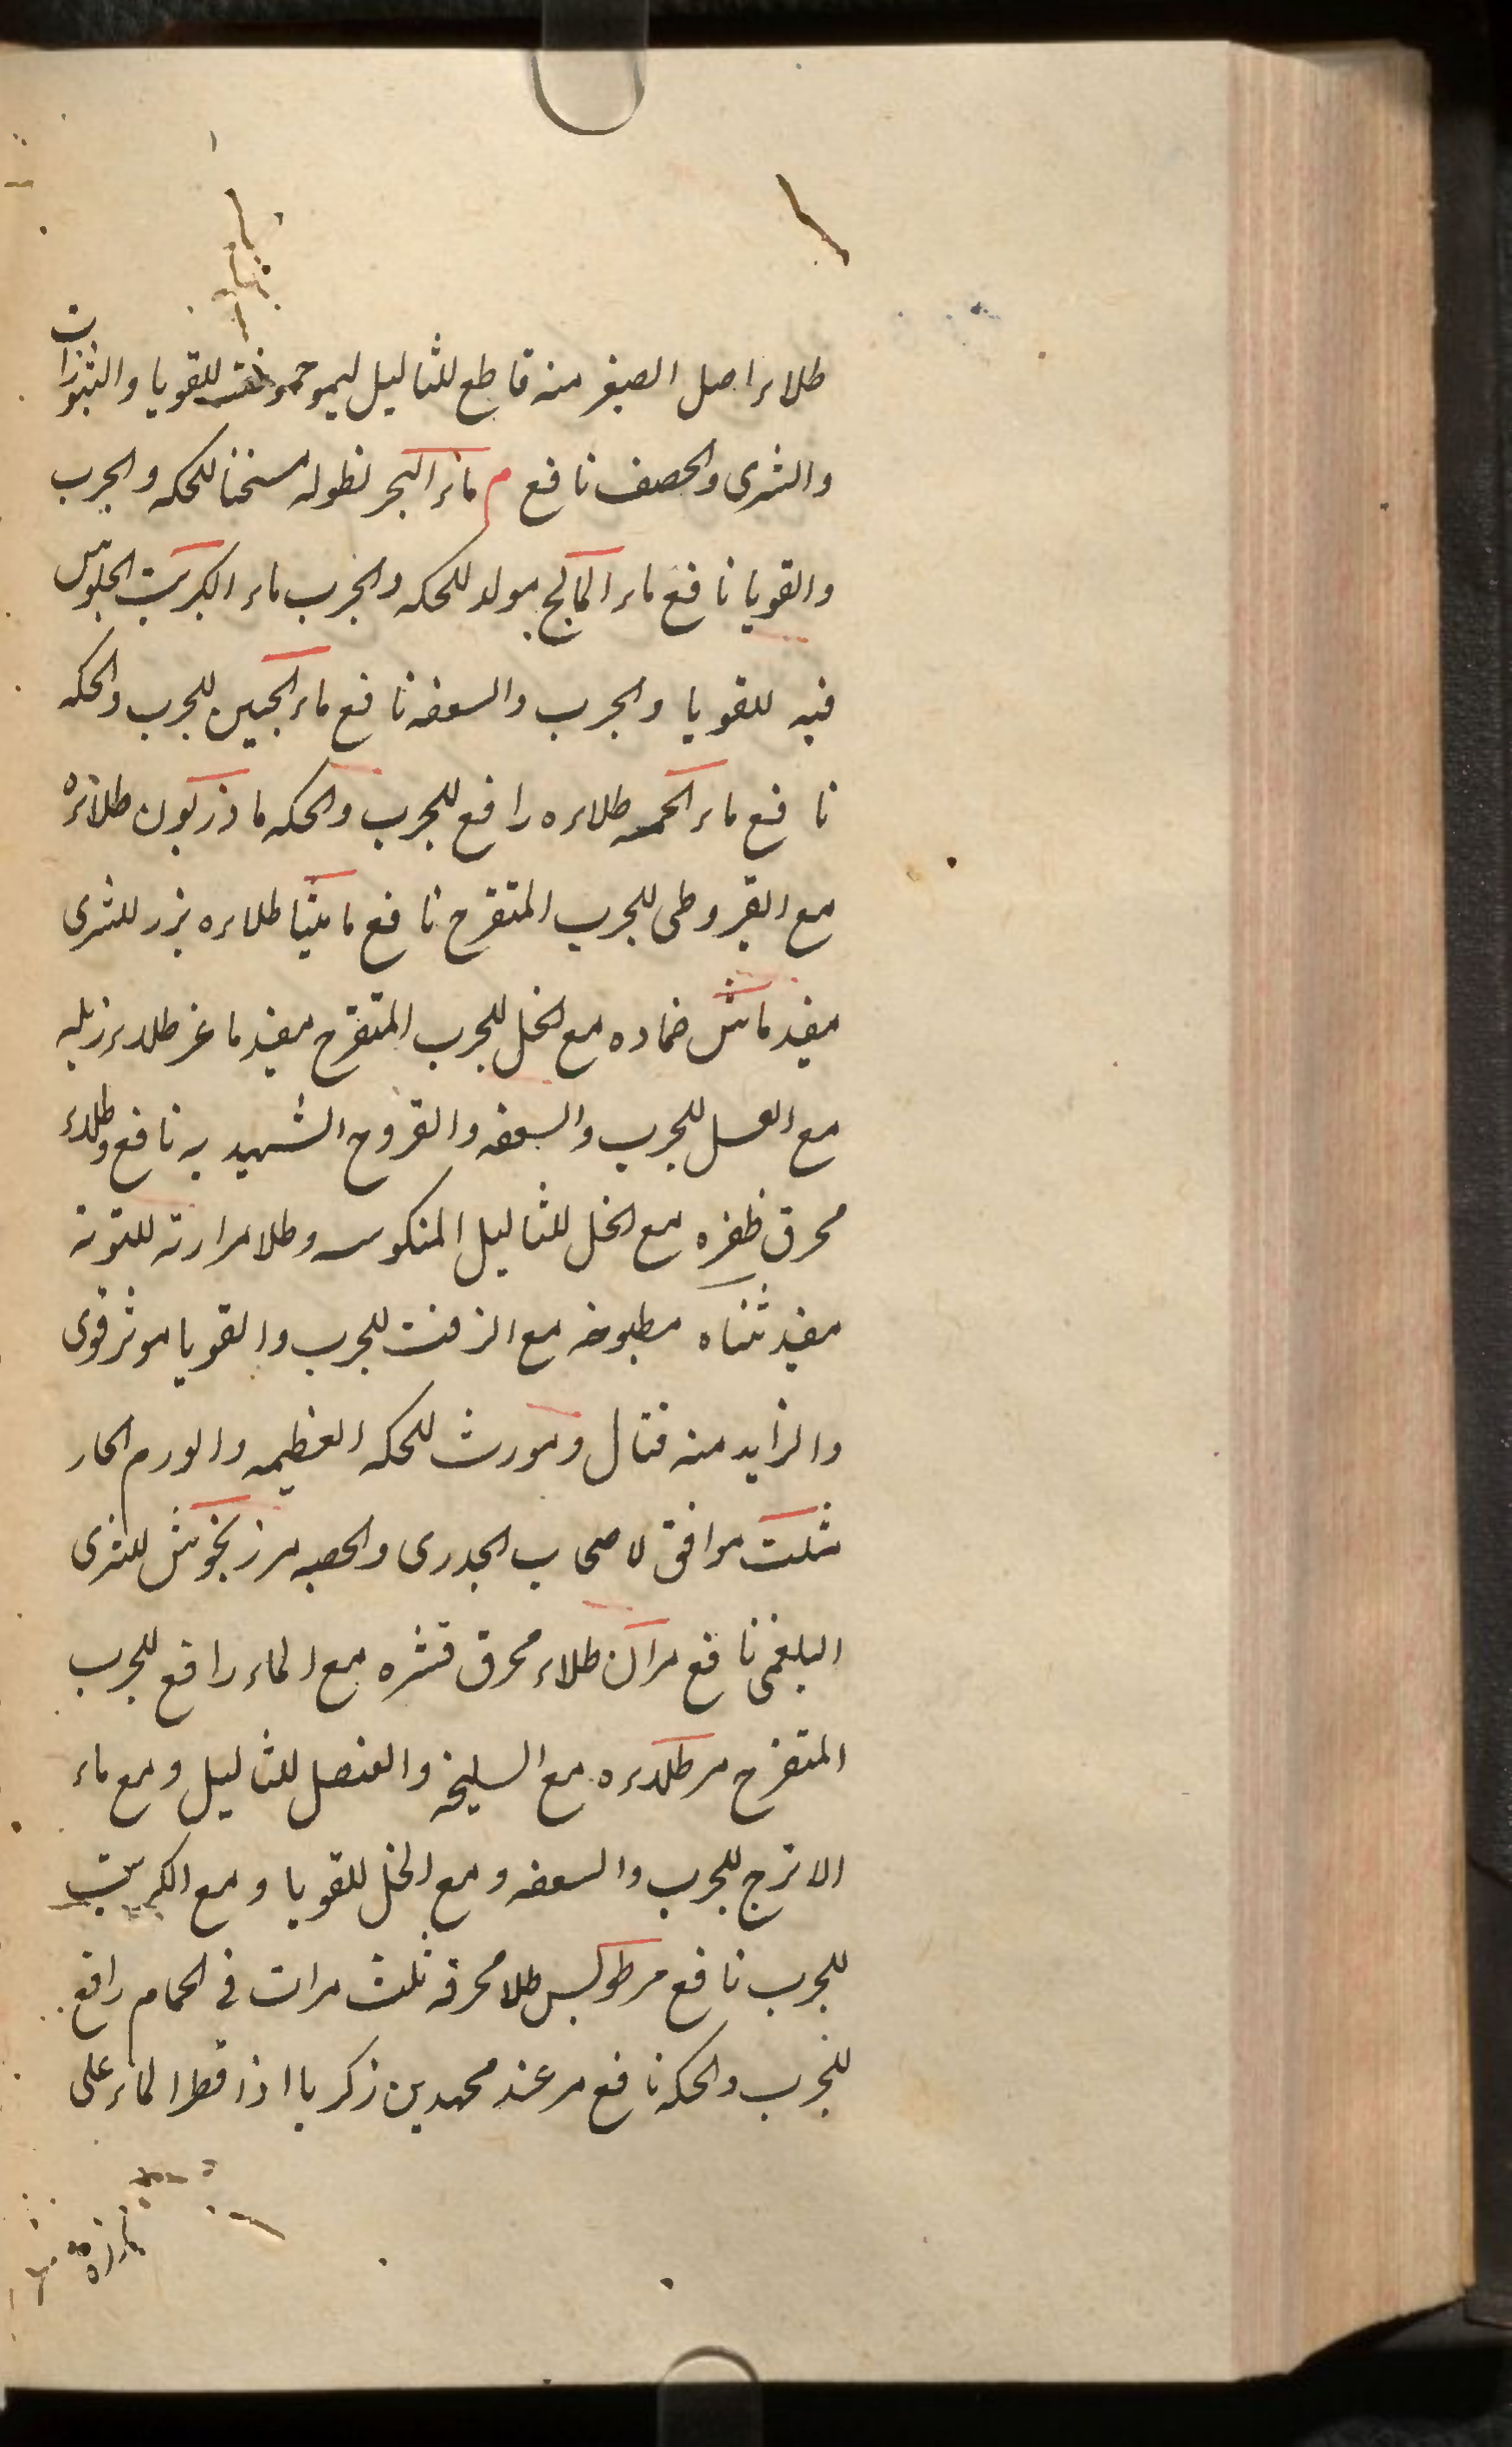 طلاء اصل الصغير منه قاطع للثاليل ليمو حموضته للقوبا والبثورات
والشرى والحصف نافع م ماء البحر نطوله مسخنا للحكه والجرب
والقوبا نافع ماء المالح مولد للحكه والجرب ماء الكبريت الجلوس
فيه للقوبا والجرب والسعفه نافع ماء الجبين للجرب والحكه
نافع ماء الحمه طلاءه رافع للجرب والحكه ماذريون طلائه
مع القيروطى للجرب المتقرح نافع ماميثا طلاءه بزر للشرى
مفيد ماش ضماده مع الخل للجرب المتقرح مفيد ماعز طلاء زبله
مع العسل للجرب والسعفه والقروح الشهيديه نافع وطلاء
محرق ظفره مع الخل للثاليل المنكوسه وطلا مرارته للتوته
مفيد مثناه مطبوخه مع الزفت للجرب والقوبا موثر قوى
والزايد منه قتال ومورث للحكه العظيمه والورم الحار
مثلث موافق لاصحاب الجدرى والحصبه مرزنجوش للشرى
البلغمى نافع مران طلاء محرق قشره مع الماء رافع للجرب
المتقرح مر طلاءه مع السليخه والعنصل للثاليل ومع ماء
الاترج للجرب والسعفه ومع الخل للقوبا ومع الكبريت
للجرب نافع مرطولس طلا محرقه ثلث مرات فى الحمام رافع
للجرب والحكه نافع مر عند محمد بن زكريا اذا قطر الماء على